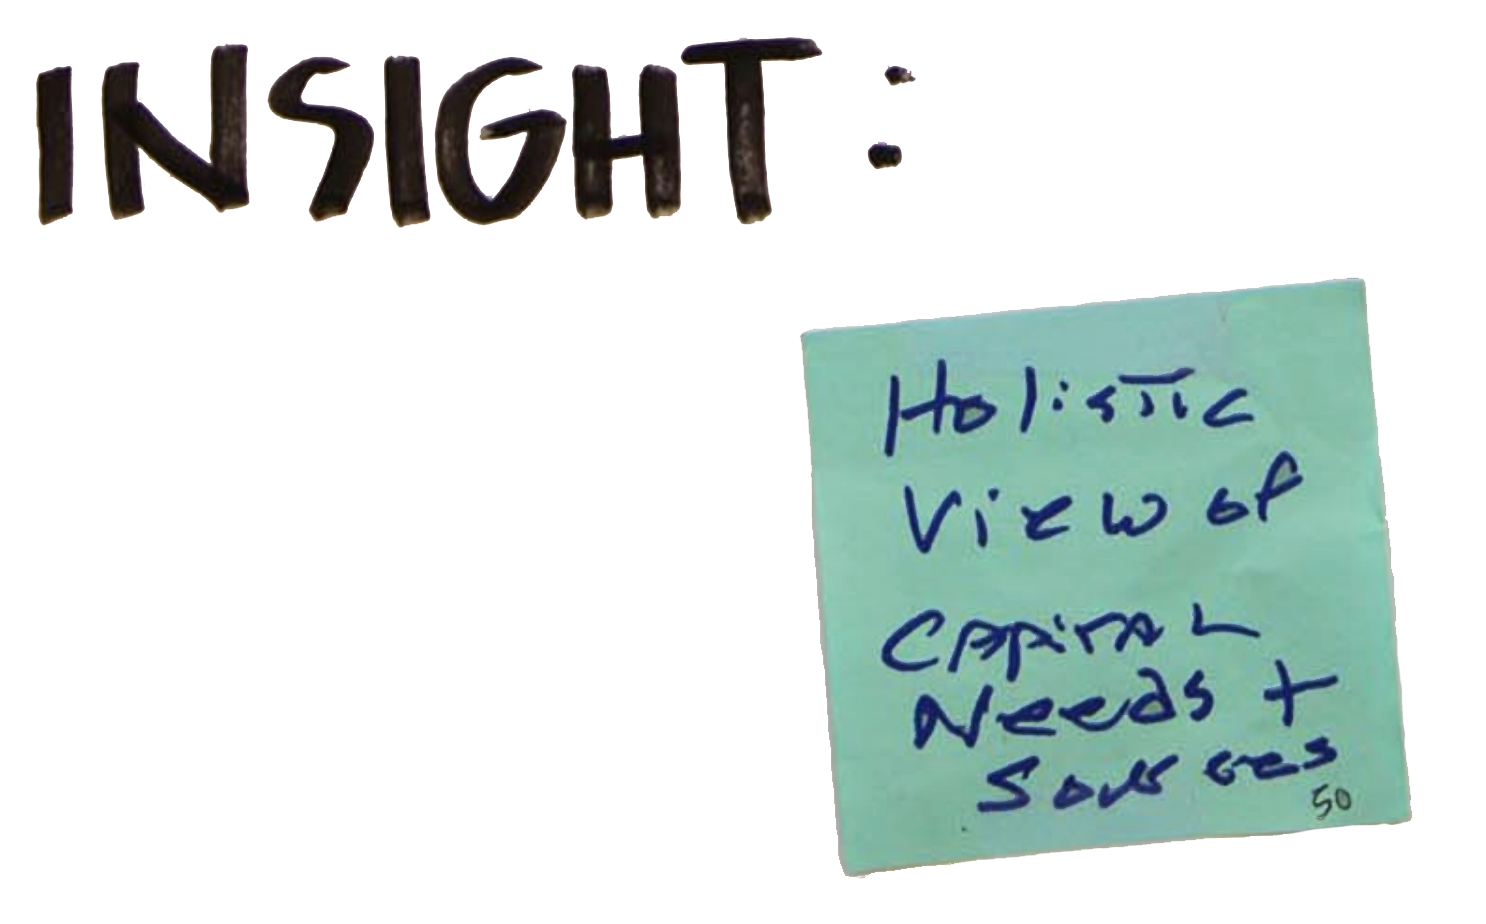 INSIGHT:
Holistic
View of
Capital
Needs +
Sources
50